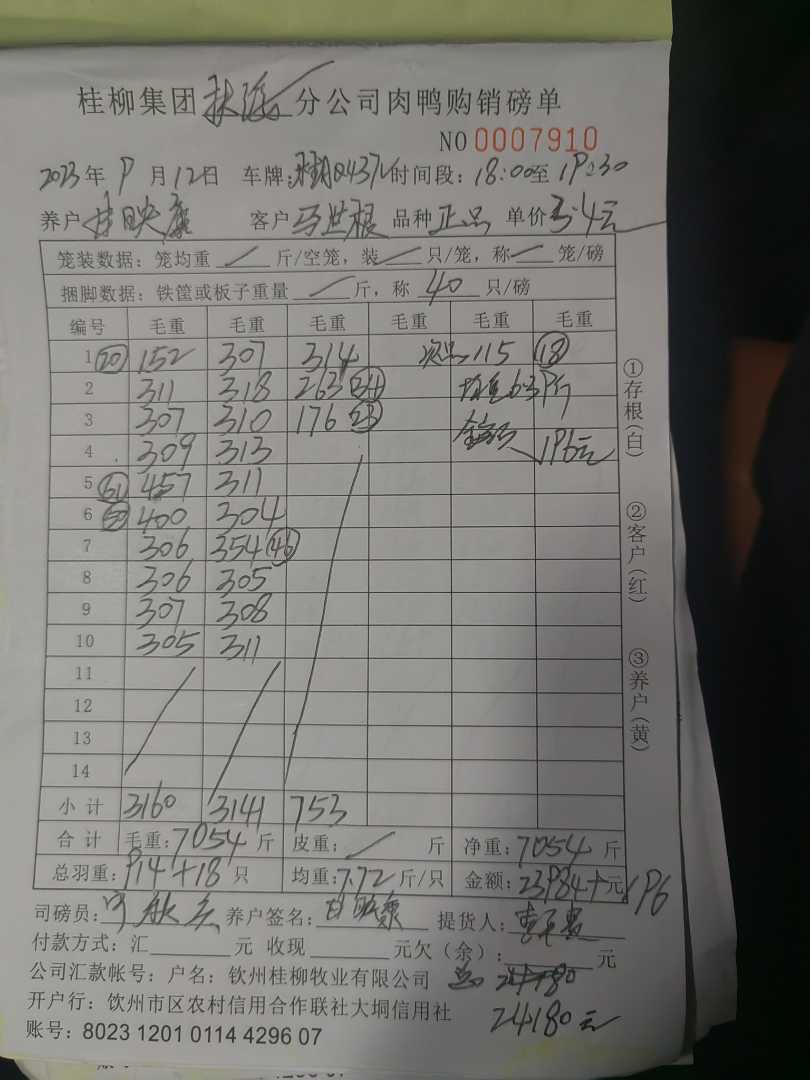 桂柳集团 分公司肉鸭购销磅单
NO 0007910
2023年9月12日 车牌: 时间段:18:00至19:30
养户 客户 马世根 品种 正品 单价 3.4元
笼装数据:笼均重 / 斤/空笼,装 / 只/笼,称 / 笼/磅
捆脚数据:铁筐或板子重量 / 斤,称 40 只/磅
编号 毛重 毛重 毛重 毛重 毛重 毛重
1 (20) 152 307 314 次品 115 (18)
2 311 318 263 (34) 均重6.39斤
3 307 310 176 (23)
4 309 313 196元
5 (61) 457 311
6 400 304
7 306 354 (46)
8 306 305
9 307 308
10 305 311
11
12
13
14
小计 3160 3141 753
合计 毛重:7054斤 皮重:/ 斤 净重:7054斤
总羽重:914+18只 均重:7.72斤/只 金额:23984+元196
司磅员: 养户签名: 提货人:
付款方式:汇 元 收现 元欠(余): 元
公司汇款帐号:户名:钦州桂柳牧业有限公司 总
开户行:饮州市区农村信用合作联社大垌信用社 24180元
账号:8023 1201 0114 4296 07
①存根(白)
②客户(红)
③养户(黄)